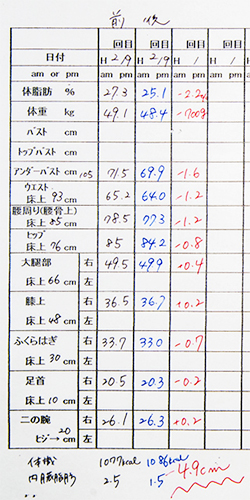 前 後
回目 回目 回目
日付 H 2/9 H 2/9 H /
am or pm am pm am pm am pm
体脂肪 % 27.3 25.1 -2.2%
体重 kg 49.1 48.4 -700g
バスト cm
トップバスト cm
アンダーバスト cm 105 71.5 69.9 -1.6
ウエスト 床上 93 cm 65.2 64.0 -1.2
腰周り(腰骨上) 床上 85 cm 78.5 77.3 -1.2
ヒップ 床上 76 cm 85 84.2 -0.8
大腿部 右 49.5 49.9 +0.4
床上 66 cm 左
膝上 右 36.5 36.7 +0.2
床上 48 cm 左
ふくらはぎ 右 33.7 33.0 -0.7
床上 30 cm 左
足首 右 20.5 20.3 -0.2
床上 10 cm 左
二の腕 右 26.1 26.3 +0.2
ヒジ→ 20 cm 左
体機 1077kcal 1086kcal
内臓脂肪 2.5 1.5 -4.9cm